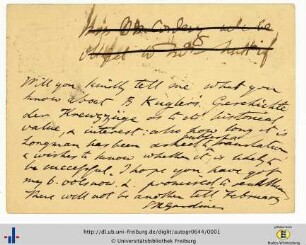 Will you kindly tell me what you
know about B. Kuglers Geschichte
der Kreuzzüge as to its historical
value, & interest: also how long it is
Longman has been asked to publish a translation
& wishes to know whether it is likely to
be successful. I hope you have got
my 6. vols now, & promised to
There will not be another till February
http://dl.ub.uni-freiburg.de/diglit/autogr0644/0001
© Universitätsbibliothek Freiburg